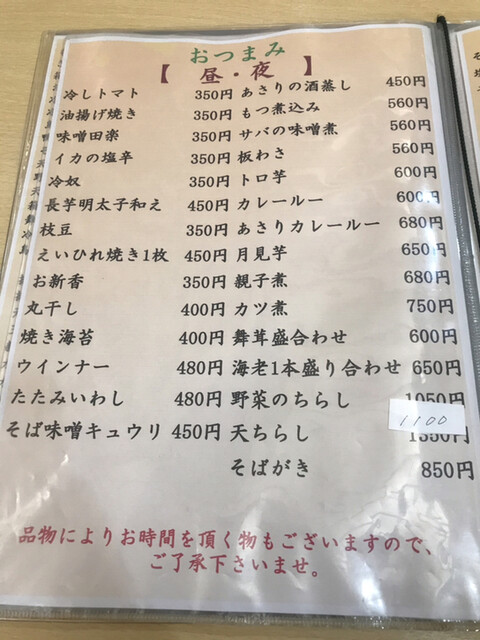 おつまみ
【 昼・夜 】
冷しトマト 350円 あさりの酒蒸し 450円
油揚げ焼き 350円 もつ煮込み 560円
味噌田楽 350円 サバの味噌煮 560円
イカの塩辛 350円 板わさ 560円
冷奴 350円 トロ芋 600円
長芋明太子和え 450円 カレールー 600円
枝豆 350円 あさりカレールー 680円
えいひれ焼き1枚 450円 月見芋 650円
お新香 350円 親子煮 680円
丸干し 400円 カツ煮 750円
焼き海苔 400円 舞茸盛合わせ 600円
ウインナー 480円 海老1本盛り合わせ 650円
たたみいわし 480円 野菜のちらし 1050円
1100
そば味噌キュウリ 450円 天ちらし 1350円
そばがき 850円
品物によりお時間を頂く物もございますので、
ご了承下さいませ。